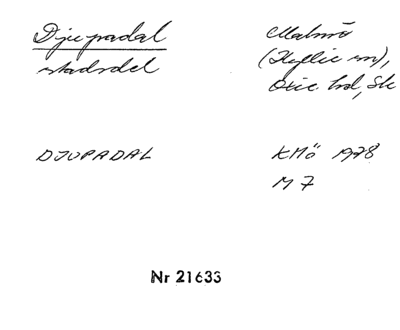 Djupadal
stadsdel
Malmö
(Hyllie sn),
Oxie hd, Sk
DJUPADAL
KMö 1978
M 7
Nr 21633